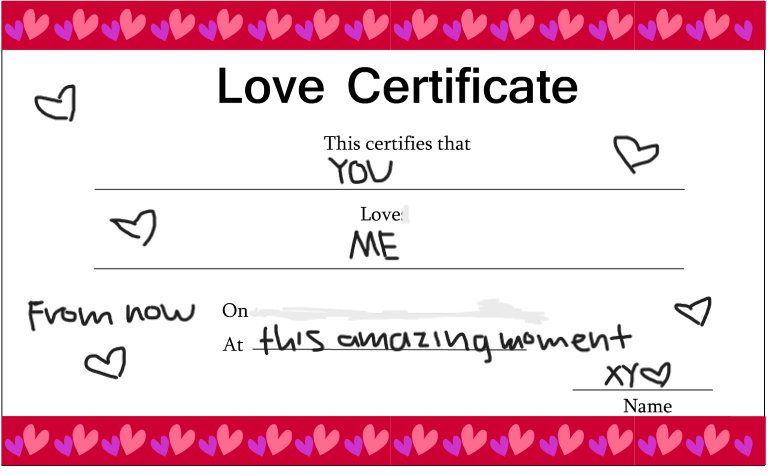 Love Certificate
This certifies that
YOU
Love
ME
From now On
At this amazing moment
XY♡
Name